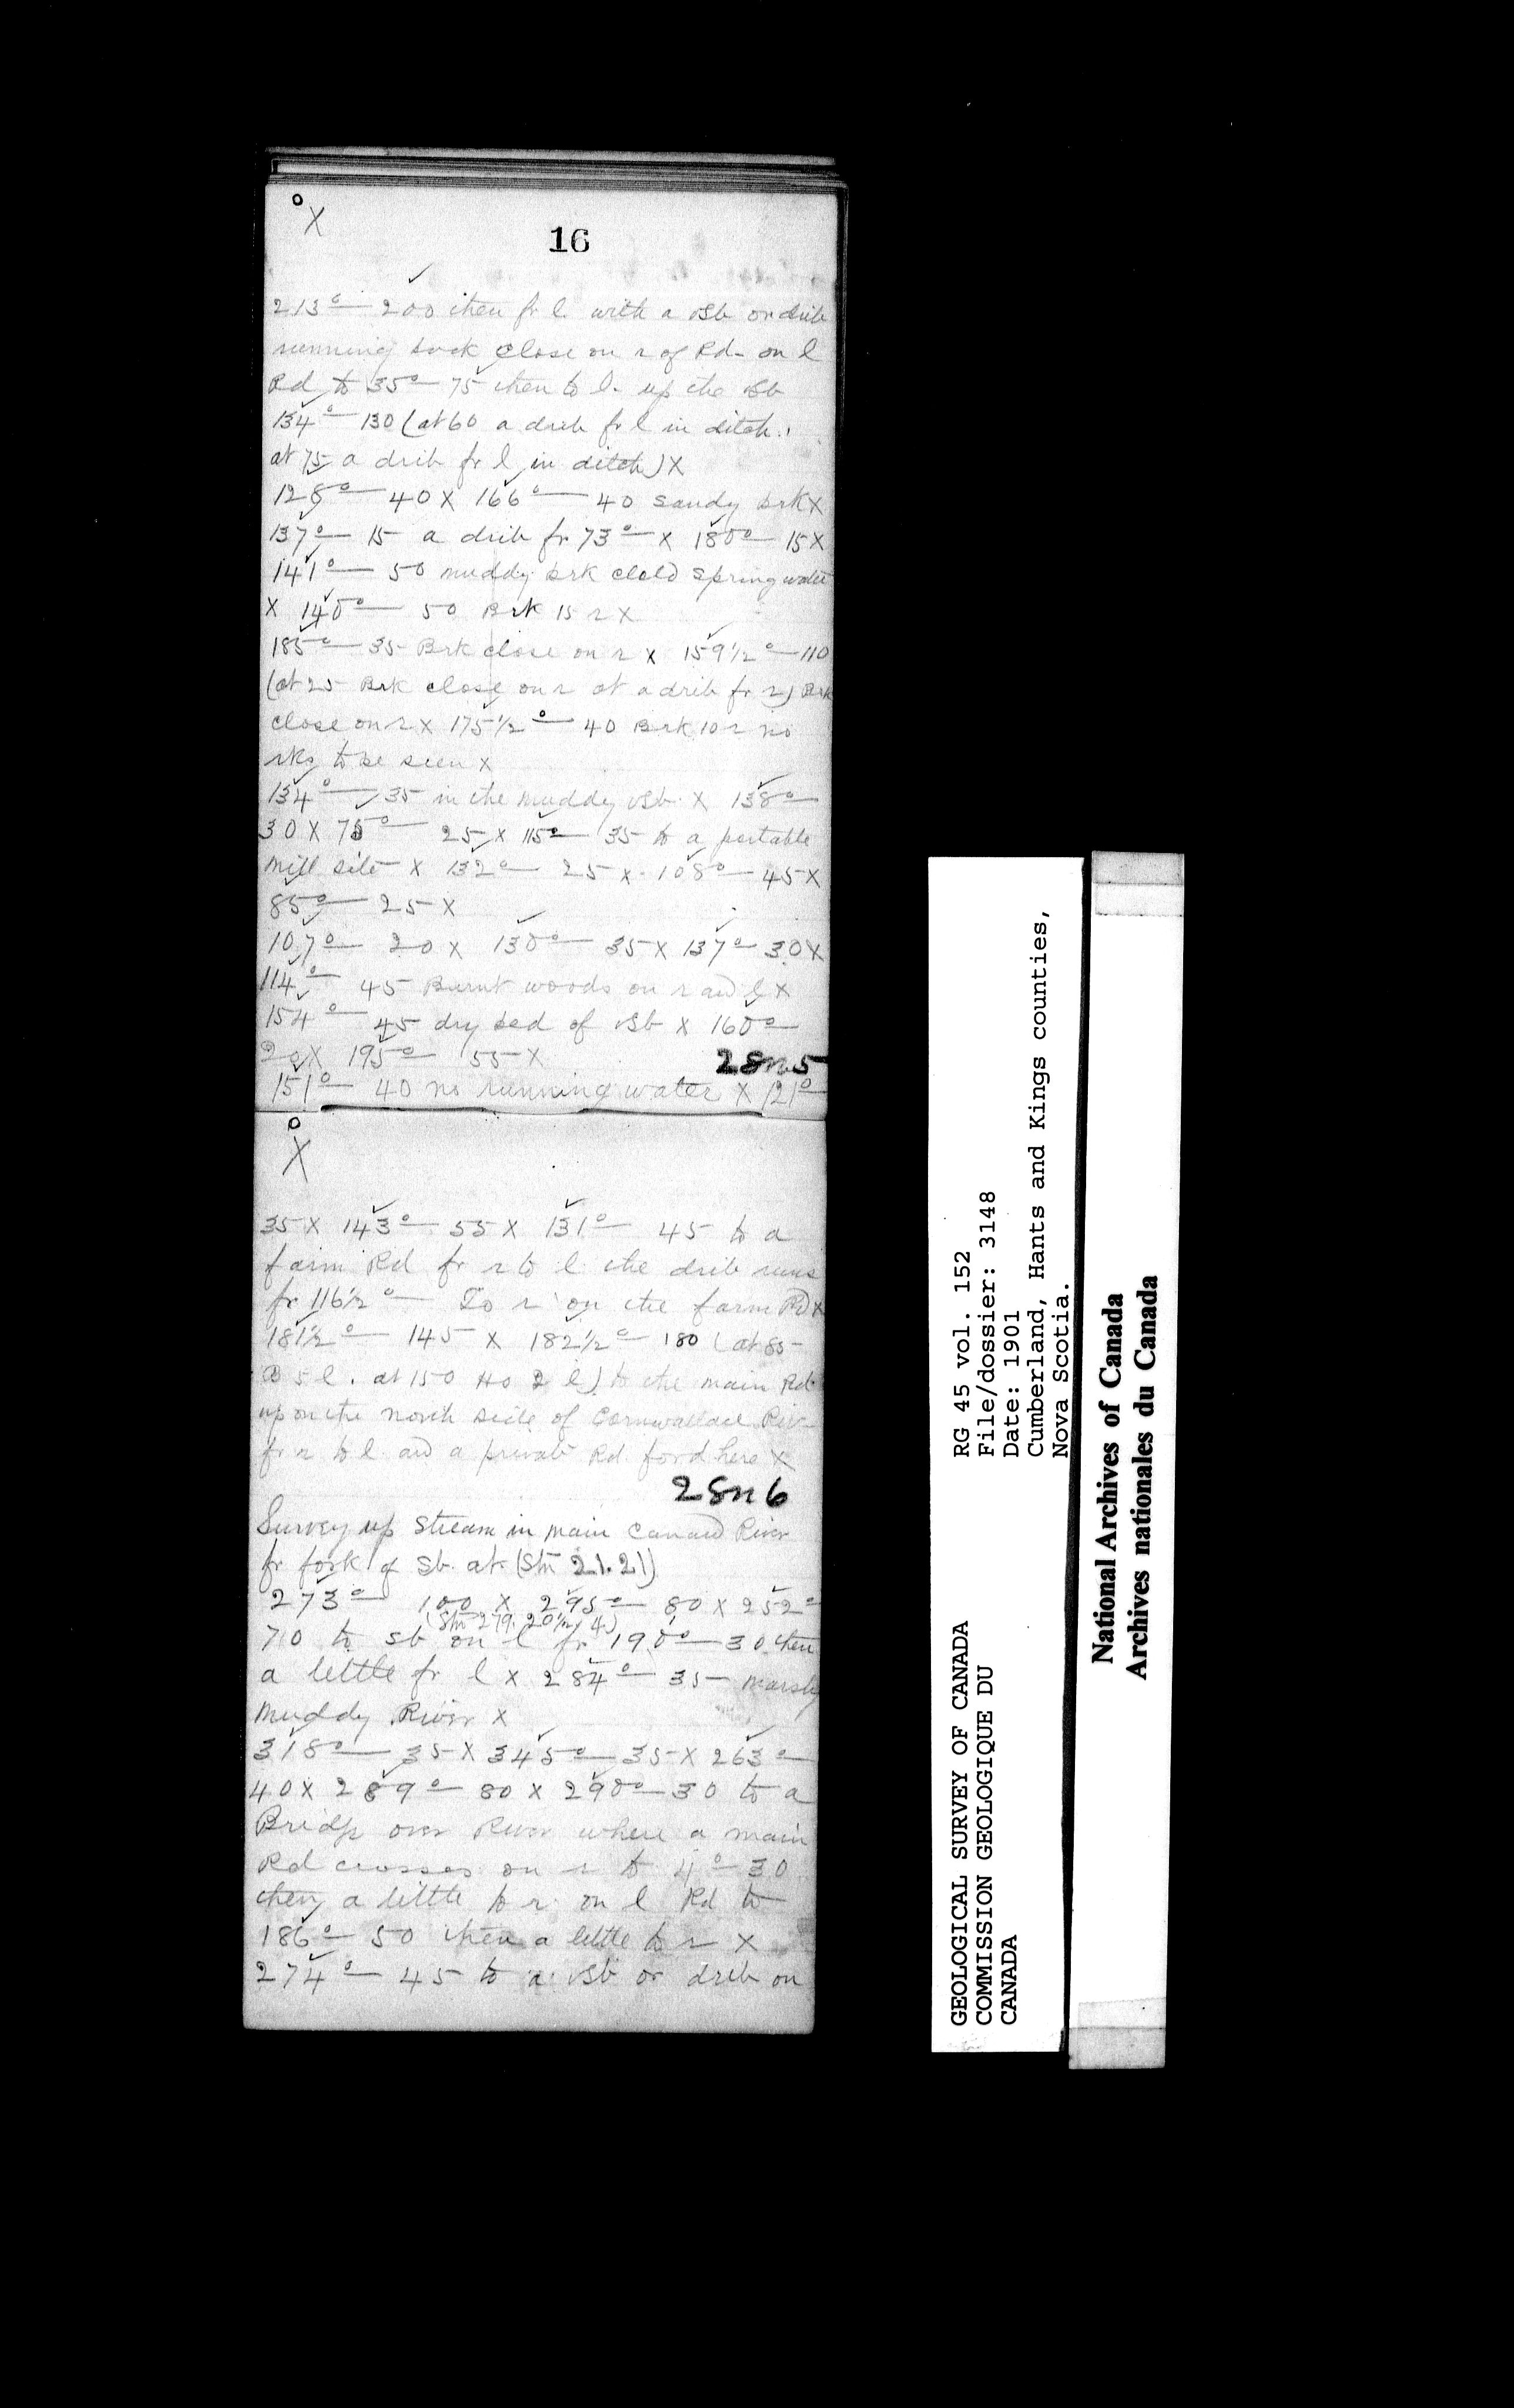 16
213° — 200 then fr l with a vSb or drib
running back close on r of Rd - on l
Rd to 35° — 75 then to l. up the vSb
134° — 130 (at 60 a drib fr l in ditch.
at 75 a drib fr l in ditch) X
128° — 40 X 166° — 40 sandy brk X
137° — 15 a drib fr 73° — X 180° — 15 X
141° — 50 muddy brk cold spring water
X 140° — 50 Brk 15 r X
185° — 35 Brk close on r X 159½° — 110
(at 25 Brk close on r at a drib fr r) Brk
close on r X 175½° — 40 Brk 10 r no
rks to be seen X
134° — 35 in the muddy vSb. X 138° —
30 X 75° — 25 X 115° — 35 to a portable
mill site X 132° — 25 X 108° — 45 X
85° — 25 X
107° — 20 X 130° — 35 X 137° 30 X
114° — 45 Burnt woods on r and l X
154° — 45 dry bed of vSb X 160° —
20 X 195° — 55 X
28n5
151° — 40 no running water X 121° —
X
35 X 143° — 55 X 131° — 45 to a
farm Rd fr r to l the drib runs
fr 116½° — To r on the farm Rd X
181½° — 145 X 182½° — 180 (at 85
B 5 l. at 150 Ho 2 l) to the main Rd
up on the north side of Cornwallace Riv
fr r to l and a private Rd ford here X
28n6
Survey up Stream in main Canard River
fr fork of Sb. at (Stn 21.21)
273° — 100 X 295° — 80 X 252° —
(Stn 279. 20½, 4)
70 to Sb on l fr 190° — 30 then
a little fr l X 284° — 35 — marshy
muddy River X
318° — 35 X 345° — 35 X 263° —
40 X 289° — 80 X 290° — 30 to a
Bridge over River where a main
Rd crosses on r to 4° — 30
then a little to r. on l Rd to
186° — 50 then a little to r X
274° — 45 to a vSb or drib on
GEOLOGICAL SURVEY OF CANADA
COMMISSION GEOLOGIQUE DU
CANADA
RG 45 vol. 152
File/dossier: 3148
Date: 1901
Cumberland, Hants and Kings counties,
Nova Scotia.
National Archives of Canada
Archives nationales du Canada